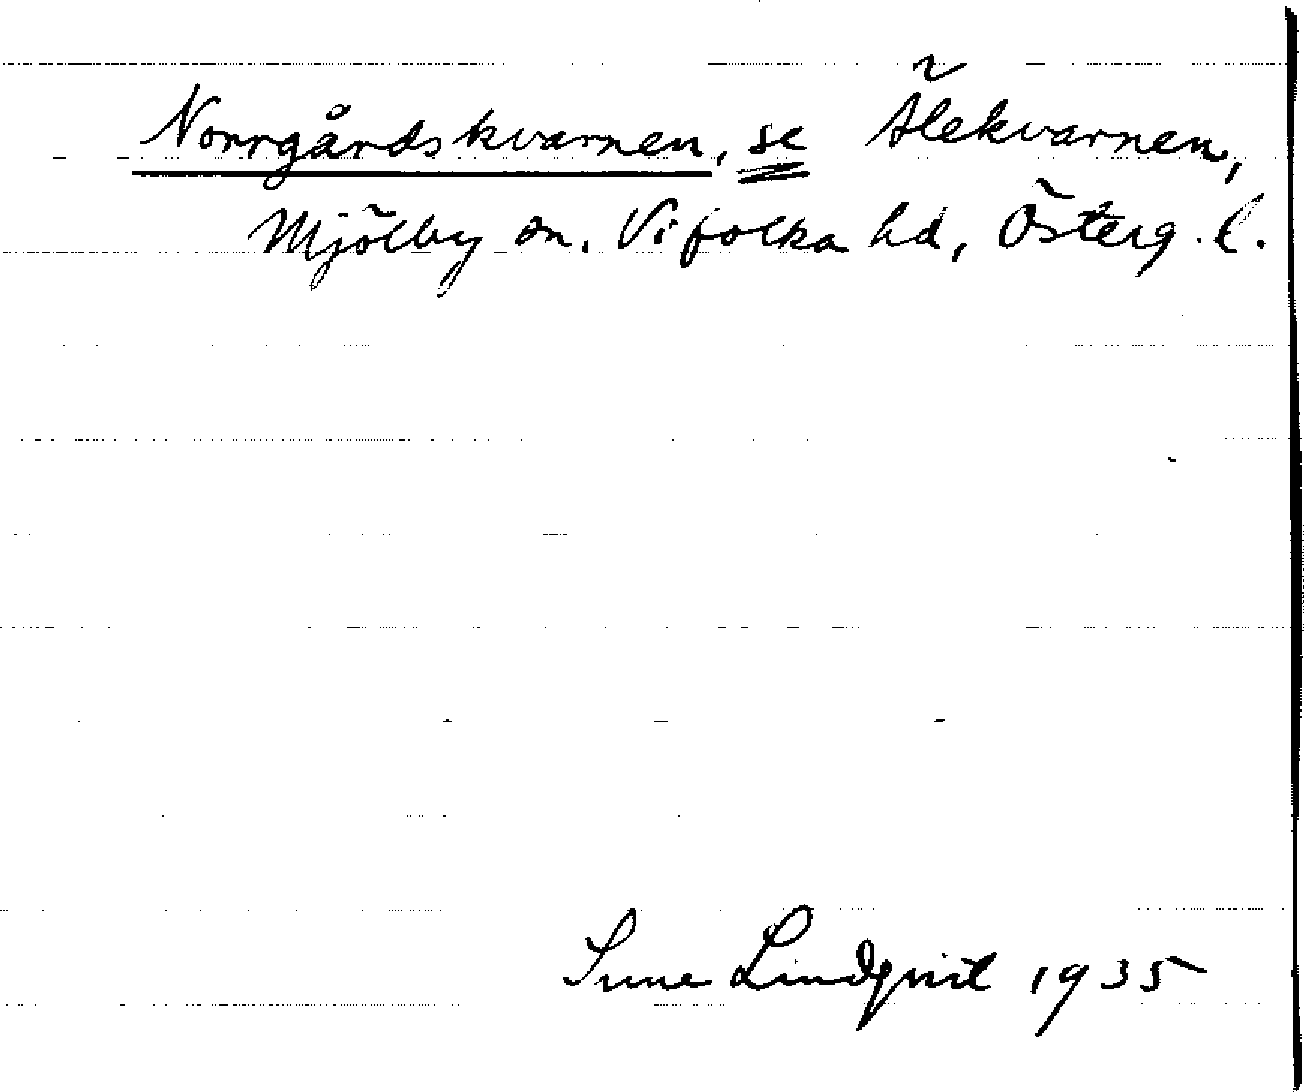 Norrgårdskvarnen, se Älekvarnen,
Mjölby sn. Vifolka hd, Österg. l.
Sune Lindqvist 1935